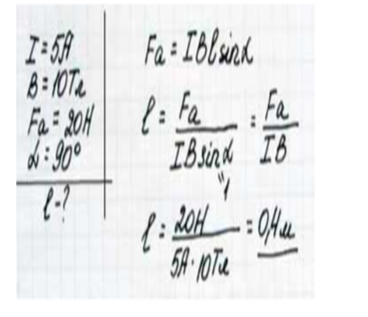 I = 5А
B = 10Тл
Fа = 20Н
α = 90°
l - ?
Fа = IBlsinα
l = Fа / IBsinα = Fа / IB
"1
l = 20Н / 5А · 10Тл = 0,4м